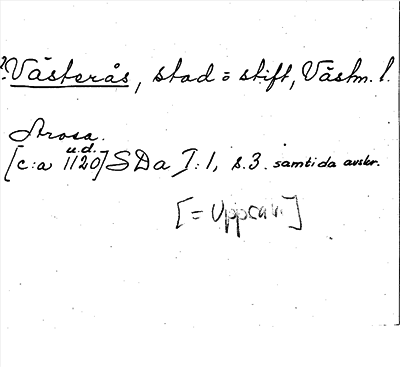 ? Västerås, stad o stift, Västm. l.
Arosa.
u.d.
[c:a 1120] SDa I:1, s.3. samtida avskr.
[= Uppsav.]